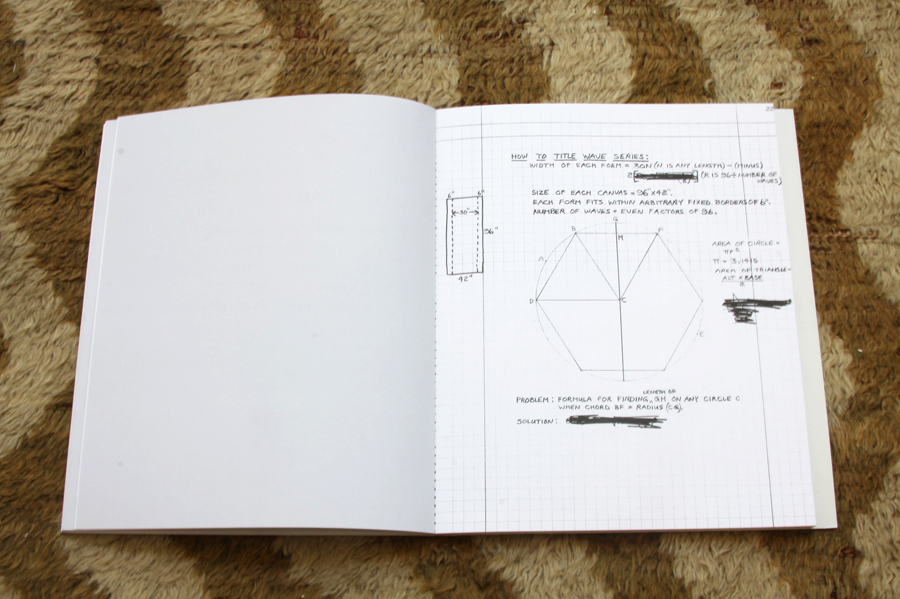 22
HOW TO TITLE WAVE SERIES:
WIDTH OF EACH FORM = 30N (N IS ANY LENGTH) - (MINUS)
2 (2) (R IS 96 ÷ NUMBER OF
WAVES)
SIZE OF EACH CANVAS = 96" X 42".
EACH FORM FITS WITHIN ARBITRARY FIXED BORDERS OF 6".
NUMBER OF WAVES = EVEN FACTORS OF 96.
6" 6"
30"
96"
42"
G
B H F
A
D C
E
AREA OF CIRCLE =
πr²
π = 3.1415
AREA OF TRIANGLE =
ALT × BASE
2
LENGTH OF
PROBLEM: FORMULA FOR FINDING GH ON ANY CIRCLE C
WHEN CHORD BF = RADIUS (CG).
SOLUTION: